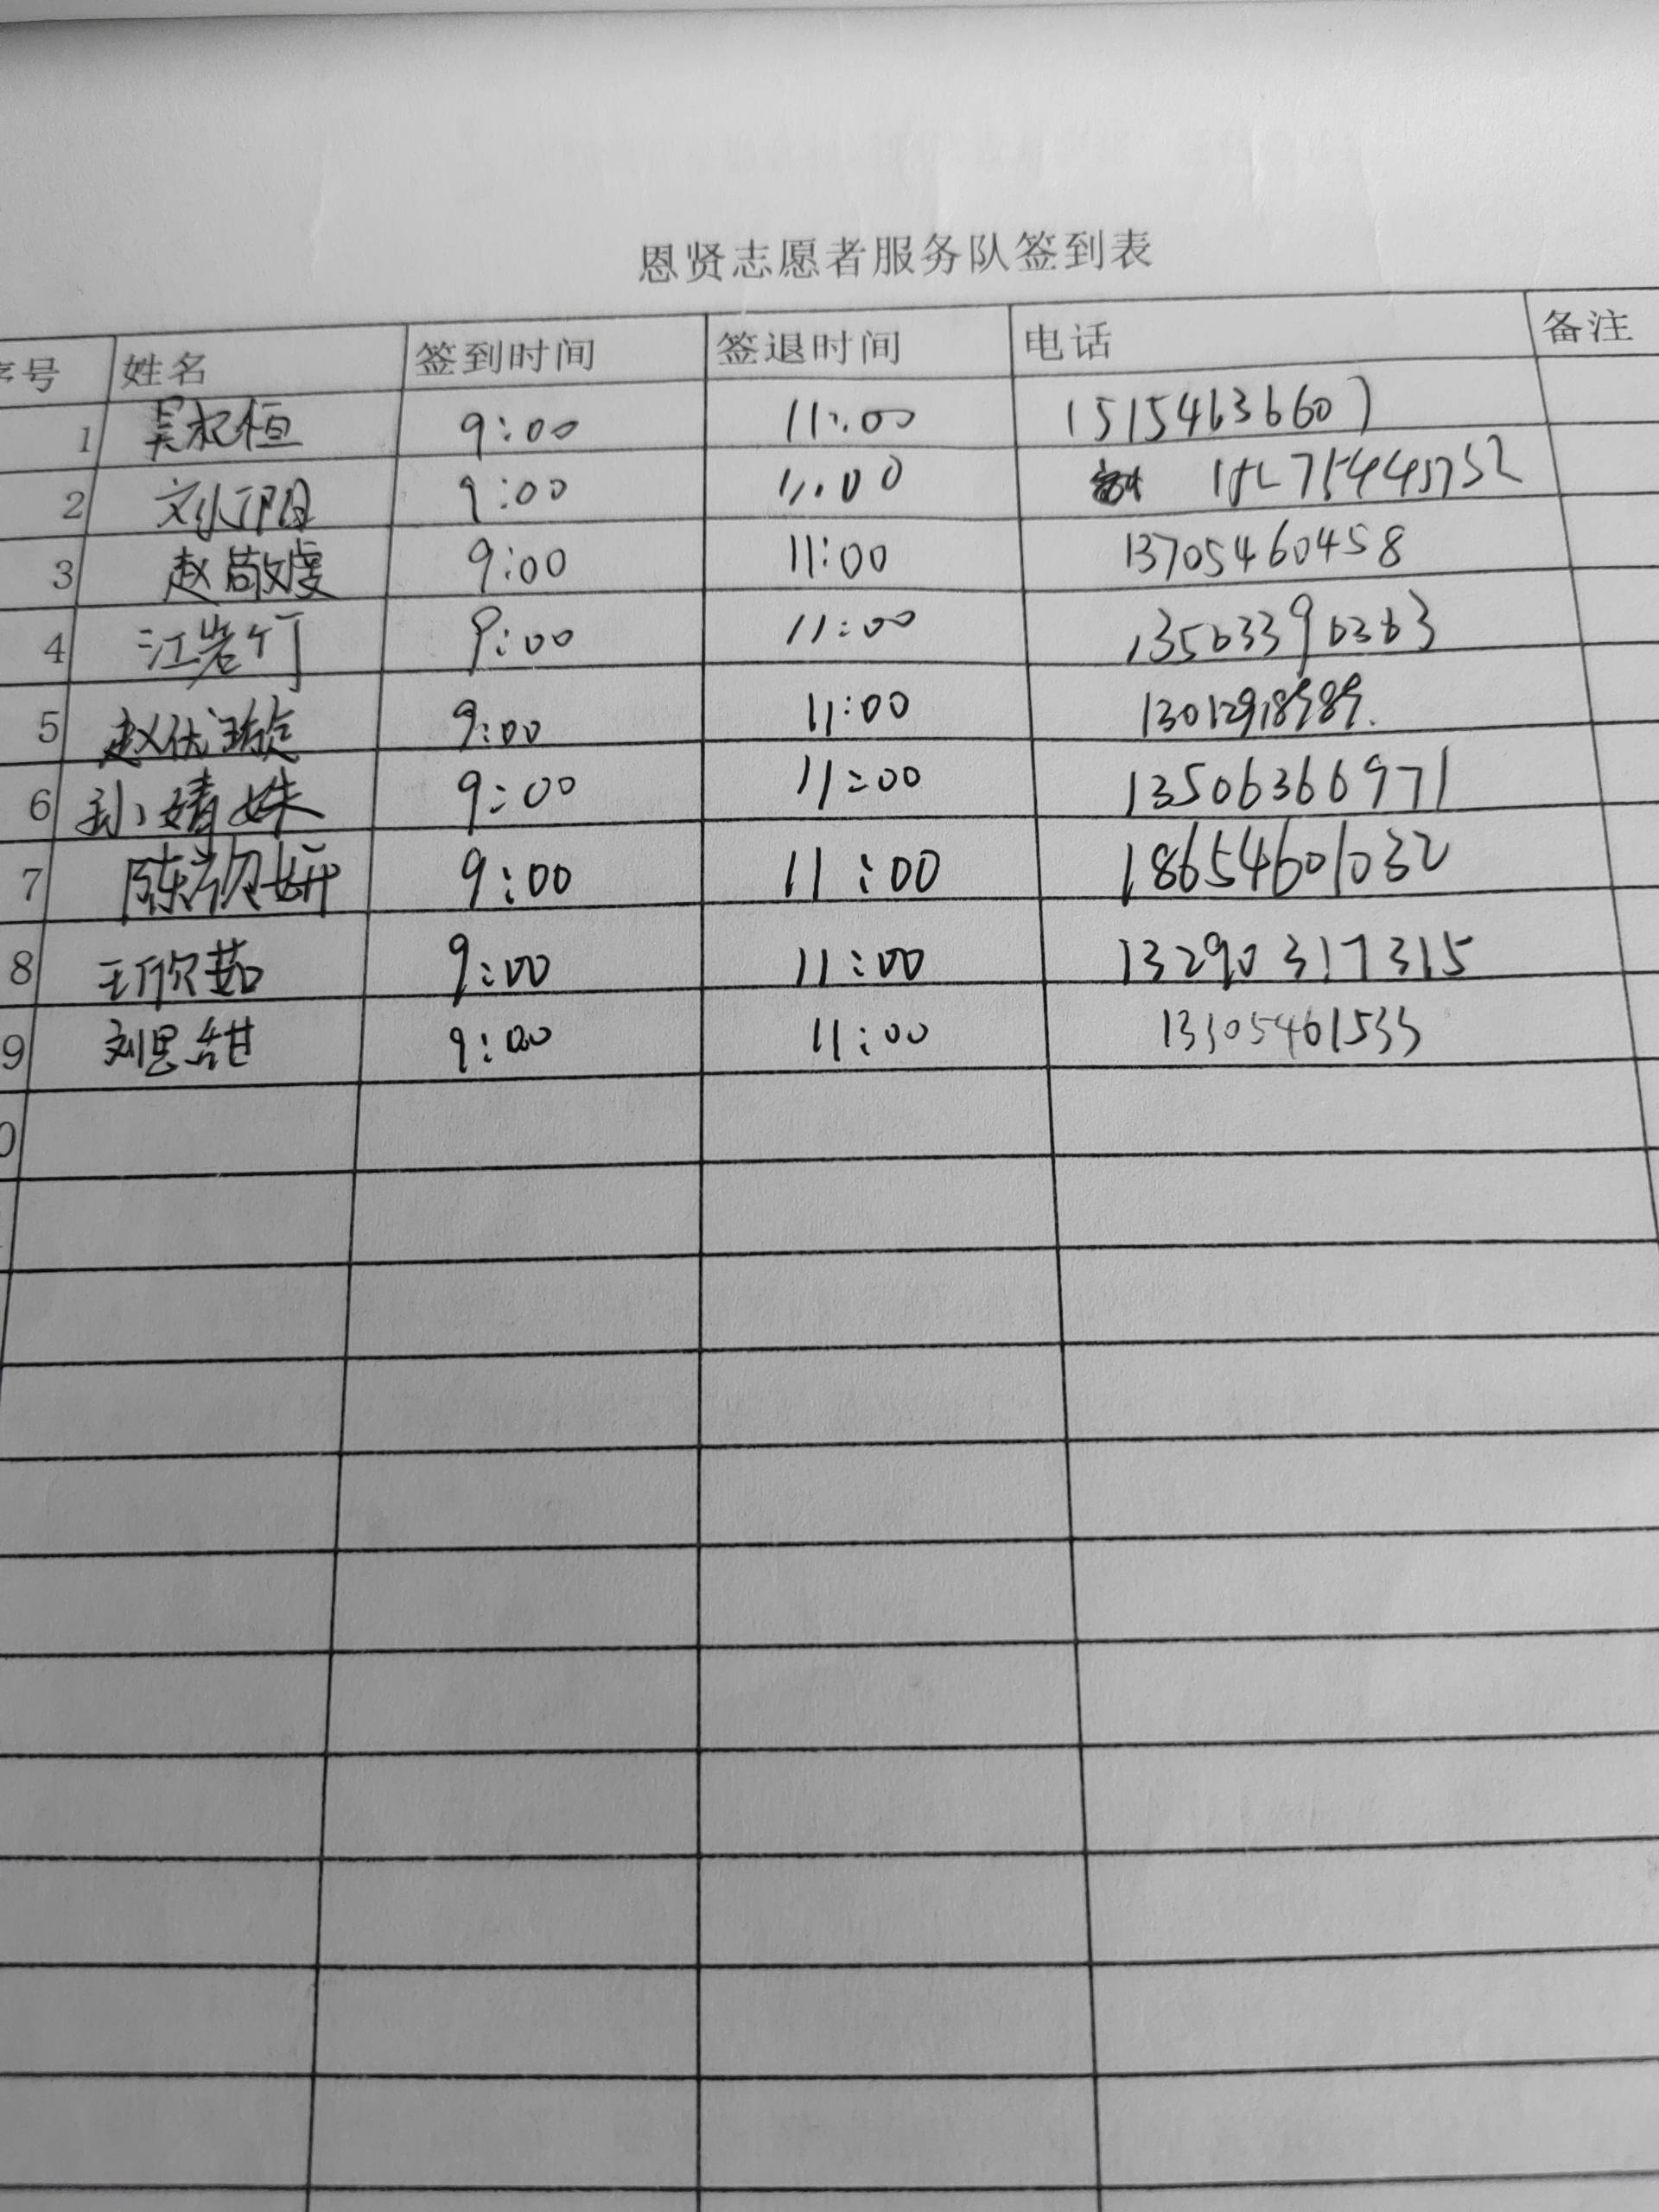 恩贤志愿者服务队签到表
序号 姓名 签到时间 签退时间 电话 备注
1 吴 恒 9:00 11:00 15154636607
2 刘 阳 9:00 11:00
3 赵敬虔 9:00 11:00 13705460458
4 江岩竹 9:00 11:00
5 赵 9:00 11:00
6 孙婧姝 9:00 11:00 13506366971
7 陈 妍 9:00 11:00 18654601032
8 王欣茹 9:00 11:00 13290317315
9 刘思甜 9:00 11:00 13305461533